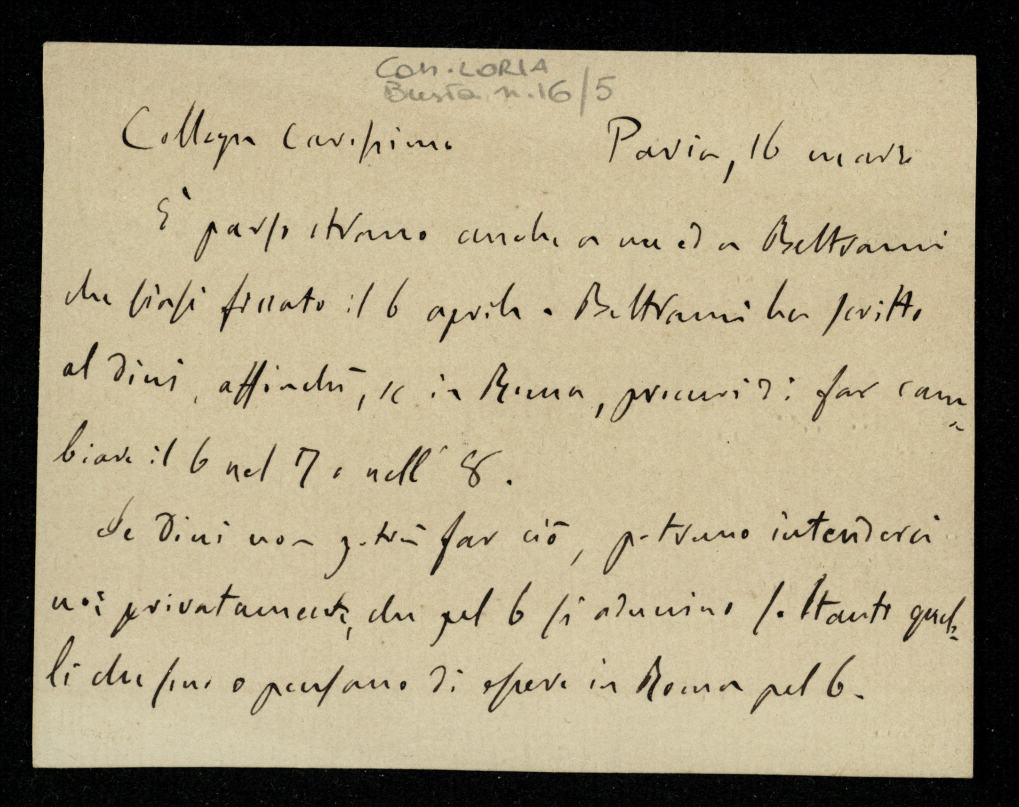 Con. LORIA
Busta n. 16/5
Collega carissimo Pavia, 16 marzo
È parso strano anche a me ed a Beltrami
che siasi fissato il 6 aprile e Beltrami ha scritto
al Dini, affinchè, se in Roma, procuri di far cam-
biare il 6 nel 7 o nell' 8.
Se Dini non potrà far ciò, potremo intenderci
noi privatamente, che pel 6 si adunino soltanto quel-
li che sono o pensano di essere in Roma pel 6.